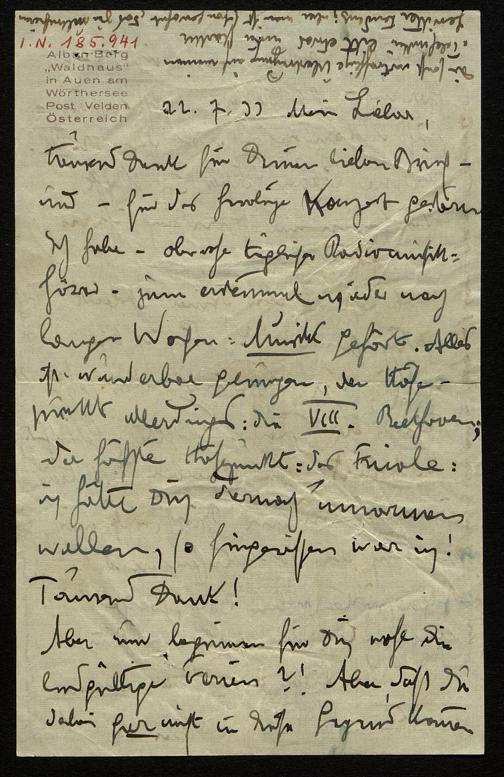 I.N. 185.941
Alban Berg
„Waldhaus"
in Auen am
Wörthersee
Post Velden
Österreich
22. 7. 33 Mein Lieber,
tausend Dank für Deinen lieben Brief –
und – für das herrliche Konzert gestern
Ich habe – obwohl täglicher Radiomusik=
hörer – zum erstenmal wieder nach
langen Wochen: Musik gehört. Alles
ist wunderbar gelungen, der Höhe=
punkt allerdings: die VIII. Beethoven,
der höchste Höhepunkt: das Finale:
ich hätte Dich darnach umarmen
wollen, so hingerissen war ich!
Tausend Dank!
Aber nun beginnen für Dich wohl die
endgültigen Ferien?! Aber, daß Du
dabei gar nicht in diese Gegend kommen